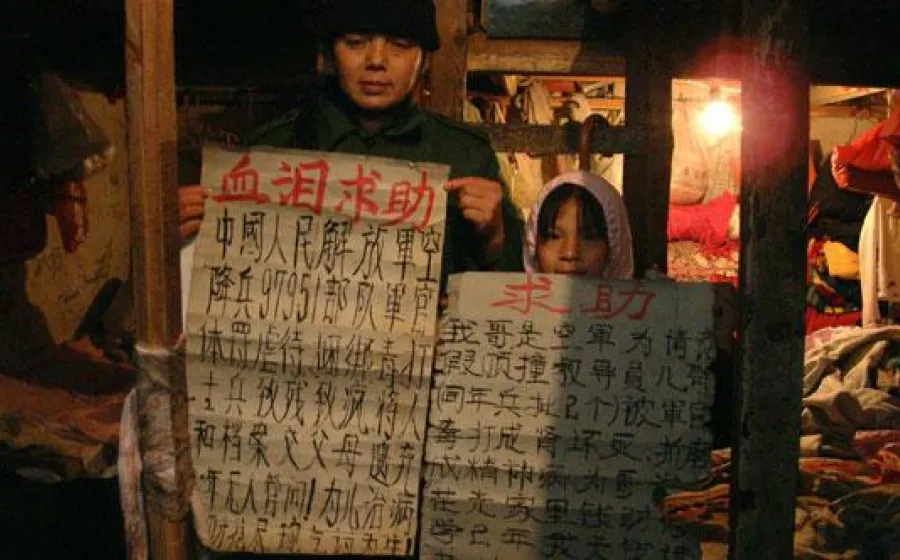 血泪求助
中國人民解放軍空
降兵97951部队軍官
体罚虐待捆绑毒打
士兵致残致疯,将人
和档案交父母遗弃
年无人管问!为儿治病
求助
我哥是空軍为请
假顶撞教导員几句
(同年兵扯2个)被軍官
毒打成肾坏更折磨
成精神病为哥
花光家里钱财
学已年我